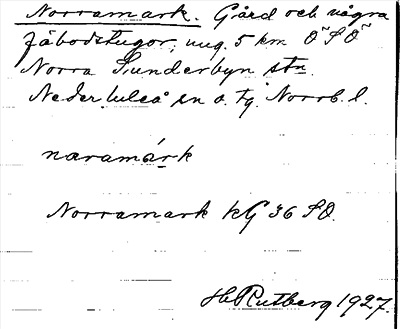 Norramark. Gård och några
fäbodstugor, ung. 5 km ÖSÖ
Norra Sunderbyn stn.
Nederluleå sn o. tg. Norrb. l.
naramárk
Norramark kG 36 SO.
Hb Rutberg 1927.